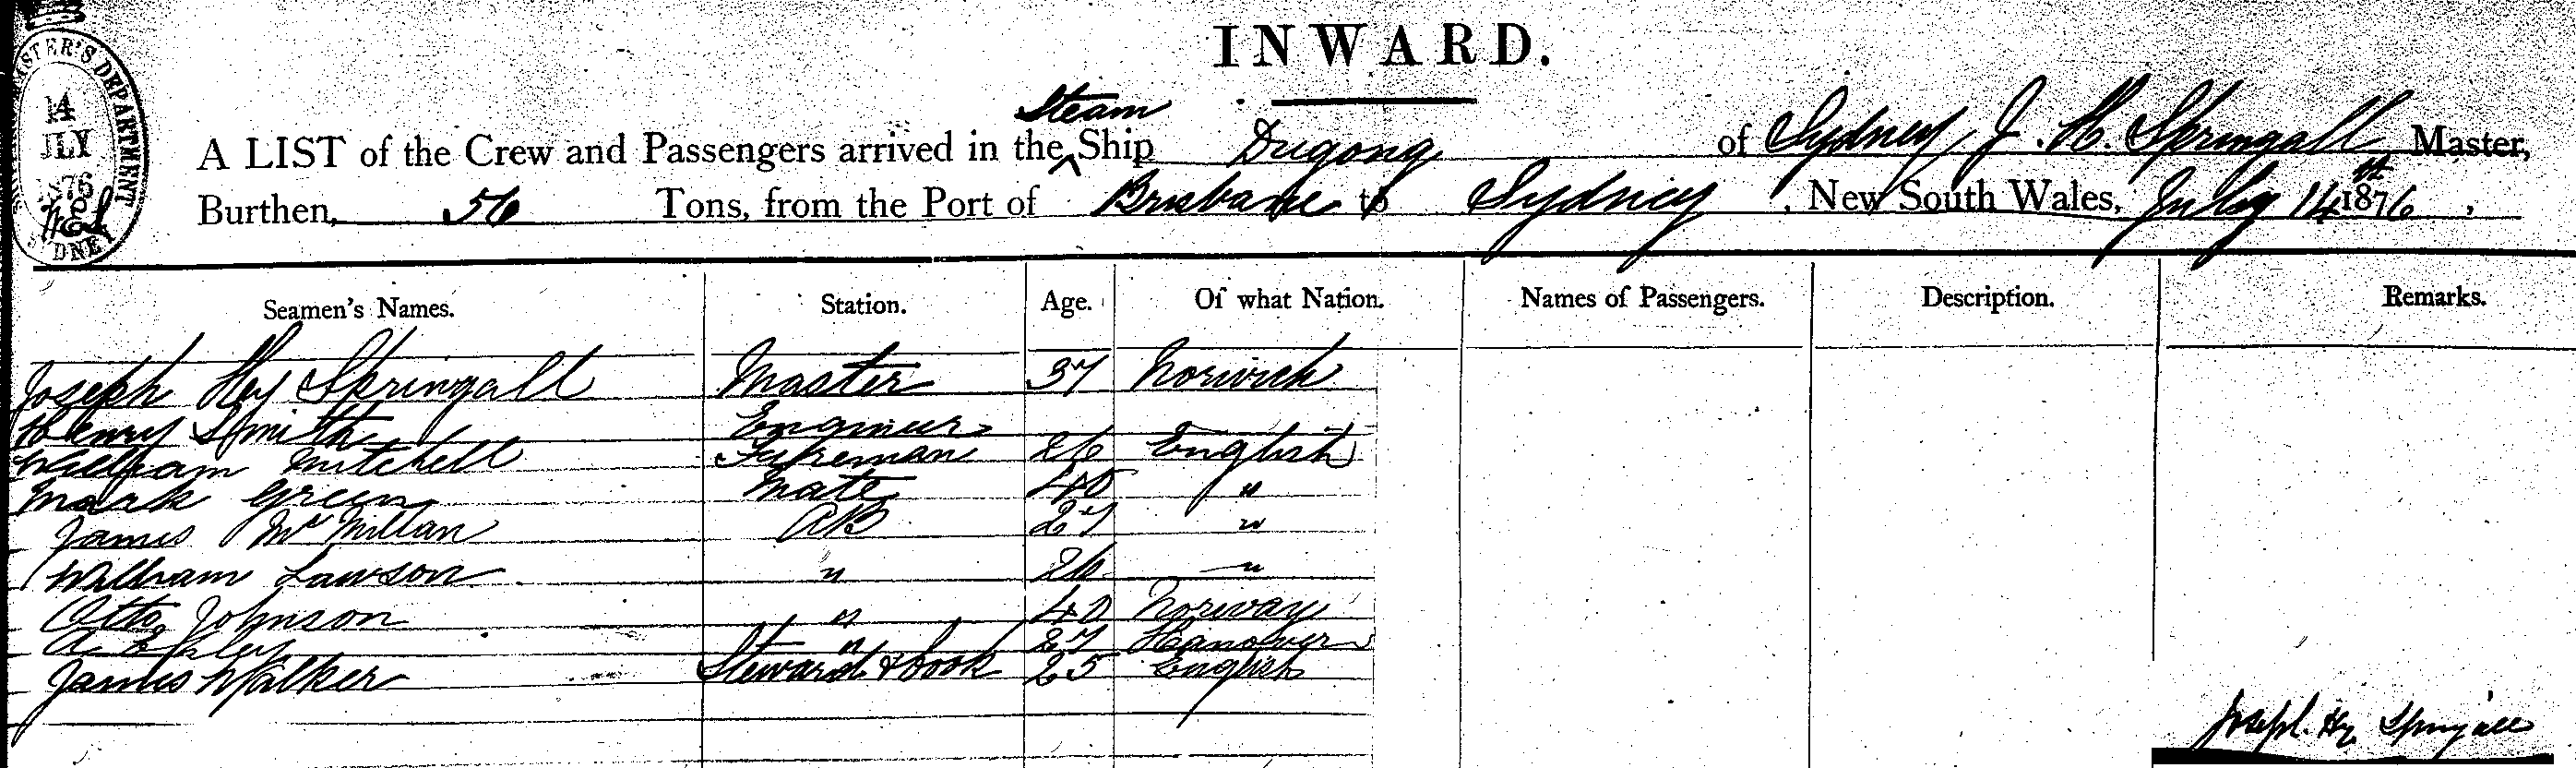 INWARD.
STER'S DEPARTMENT
14
JLY
1876
SYDNEY
Steam
A LIST of the Crew and Passengers arrived in the ^ Ship Dugong of Sydney, J. H. Springall Master,
Burthen, 56 Tons, from the Port of Brisbane to Sydney, New South Wales, July 14th 1876,
Seamen's Names. Station. Age. Of what Nation. Names of Passengers. Description. Remarks.
Joseph Hy Springall Master 37 Norwich
Henry Smith Engineer
William Mitchell Fireman 26 English
Mark Green Mate 40 "
James McMillan AB 27 "
William Lawson " 26 "
Otto Johnson " 40 Norway
A. " 27 Hanover
James Walker Steward & Cook 25 English
Joseph Hy Springall